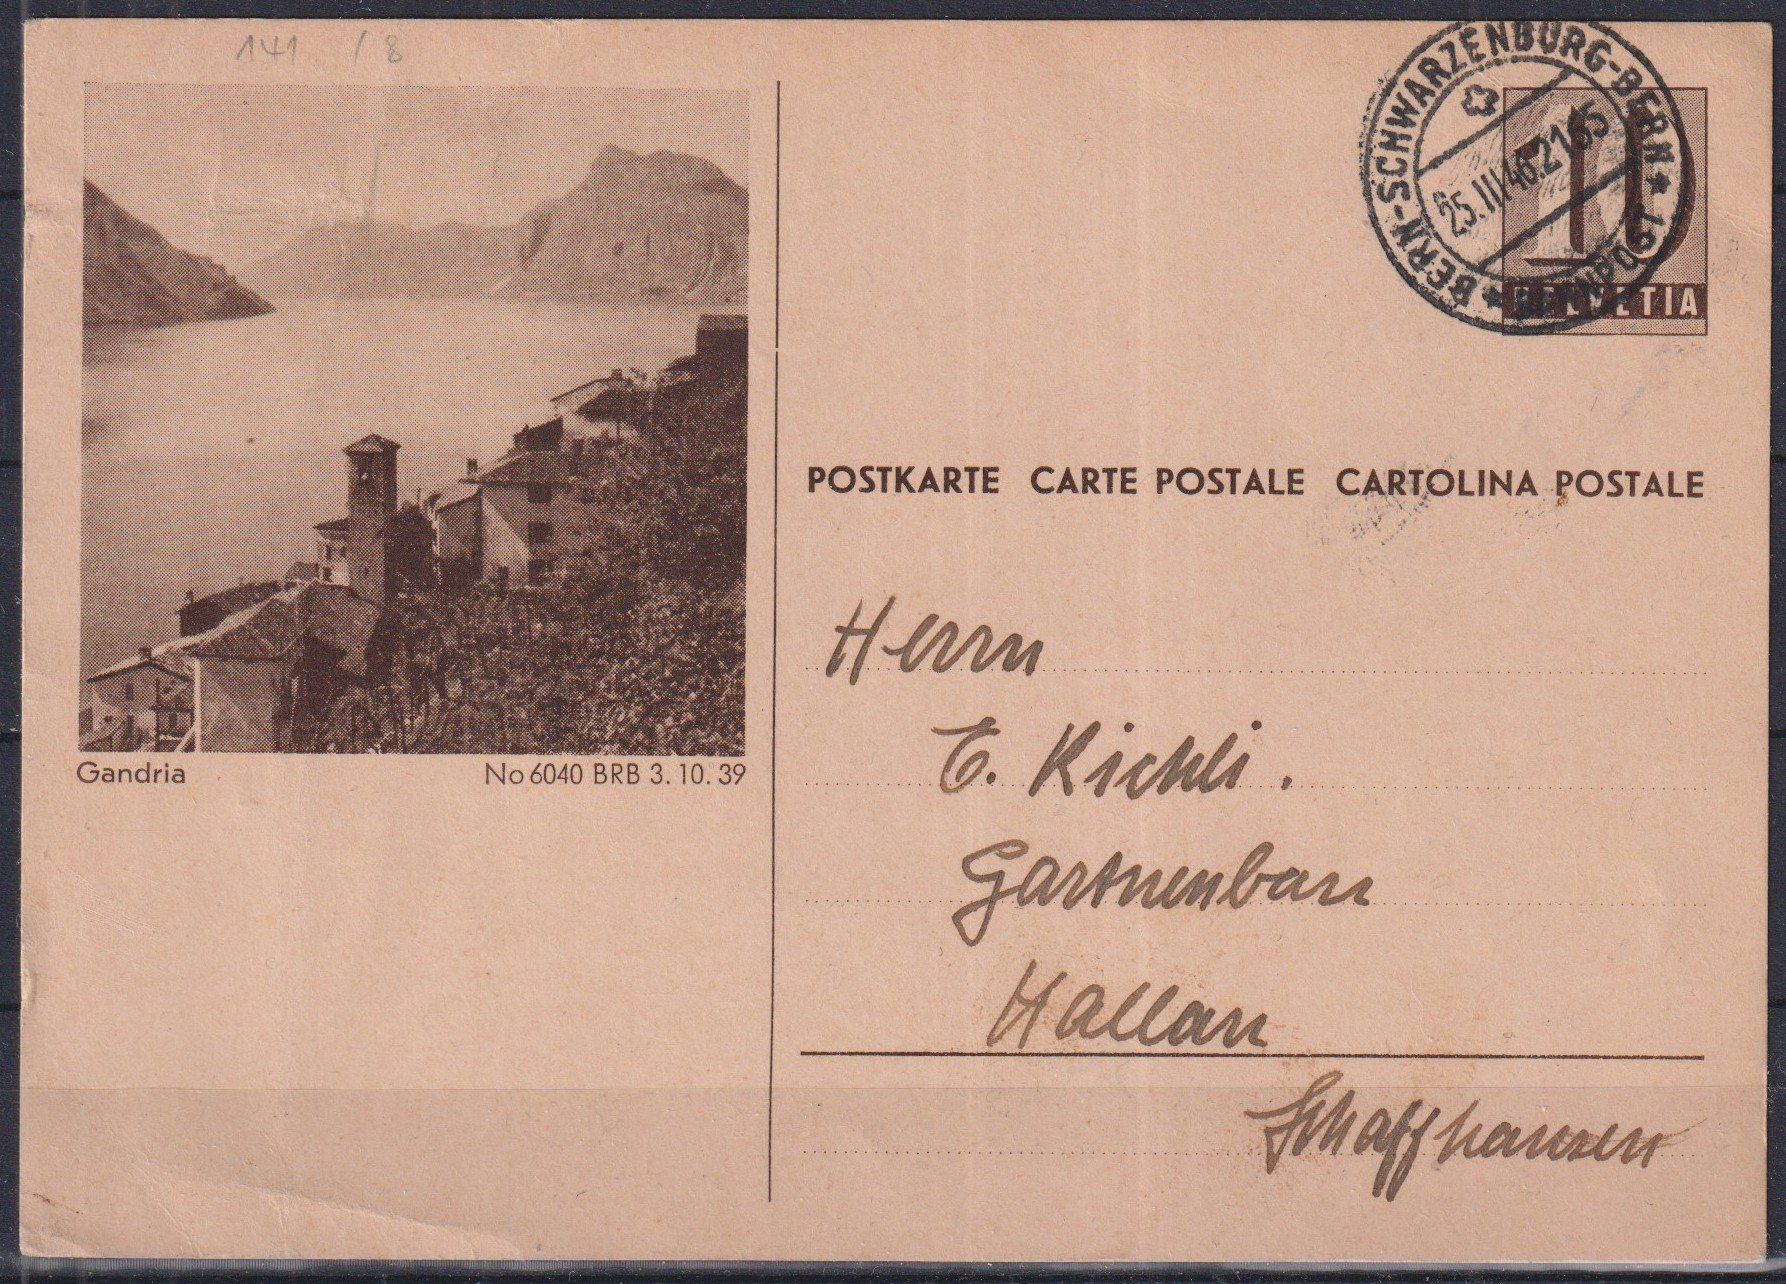 141 / 8
BERN-SCHWARZENBURG-BERN
25.III 46.21
BAHNPOST
10
HELVETIA
POSTKARTE CARTE POSTALE CARTOLINA POSTALE
Gandria
No 6040 BRB 3. 10. 39
Herrn
E. Kichli.
Gartnenbau
Hallau
Schaffhausen